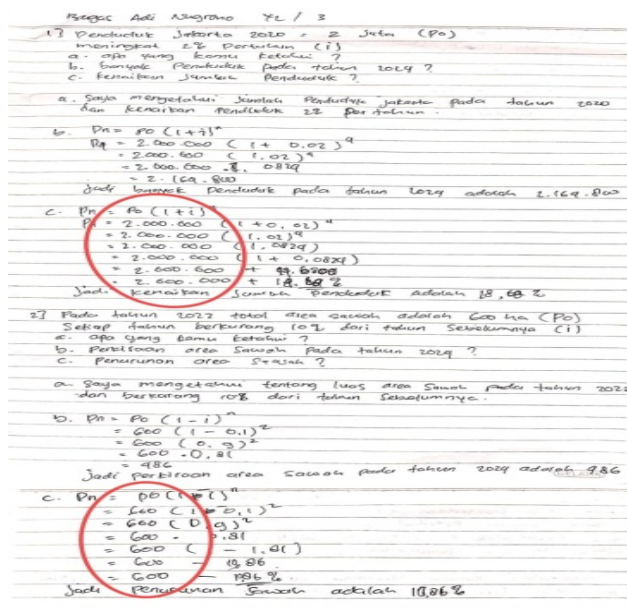 Bagas Adi Nugroho XL / 3
1] Penduduk Jakarta 2020 = 2 Juta (Po)
meningkat 2% Pertahun (i)
a. apa yang kamu ketahui ?
b. banyak Penduduk pada tahun 2024 ?
c. kenaikan Jumlah Penduduk ?
a. Saya mengetahui Jumlah Penduduk jakarta pada tahun 2020
dan kenaikan Penduduk 2% per tahun.
b. Pn = Po (1+i)^n
= 2.000.000 ( 1 + 0.02 )^4
= 2.000.000 ( 1.02 )^4
= 2.000.000 . 1, 0824
= 2. 164. 800
Jadi banyak Penduduk pada tahun 2024 adalah 2.164.800
c. Pn = Po (1+i)^n
= 2.000.000 ( 1 + 0, 02 )^4
= 2.000.000 ( 1, 02 )^4
= 2.000.000 ( 1, 0824 )
= 2.000.000 ( 1 + 0,0824 )
= 2.000.000 +
= 2.000.000 + %
Jadi kenaikan Jumlah Penduduk Adalah 18,68 %
2] Pada tahun 2022 total area sawah adalah 600 ha (Po)
Setiap tahun berkurang 10% dari tahun Sebelumnya (i)
a. apa yang kamu ketahui ?
b. Perkiraan area Sawah Pada tahun 2024 ?
c. Penurunan area Sawah ?
a. Saya mengetahui tentang luas area Sawah pada tahun 2022
dan berkurang 10% dari tahun Sebelumnya.
b. Pn = Po (1 - i)^n
= 600 (1 - 0,1)^2
= 600 ( 0, 9 )^2
= 600 . 0,81
= 486
Jadi perkiraan area sawah pada tahun 2024 adalah 486
c. Pn = Po (1 - i)^n
= 600 (1 - 0,1)^2
= 600 ( 0,9 )^2
= 600 . 0,81
= 600 ( - 1.81 )
= 600 - 10,86
= 600 - %
Jadi Penurunan Sawah adalah 10,86 %